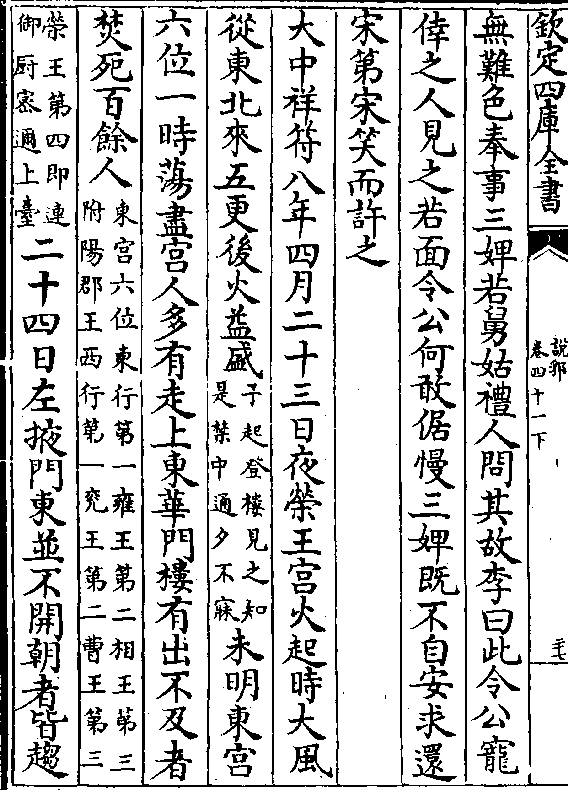 欽定四庫全書
說郛
卷四十一下
無難色奉事三婢若舅姑禮人問其故李曰此令公寵
倖之人見之若面令公何敢倨慢三婢既不自安求還
宋第宋笑而許之
大中祥符八年四月二十三日夜榮王宮火起時大風
從東北來五更後火益盛子起登樓見之知是禁中通夕不寐未明東宮
六位一時蕩盡宮人多有走上東華門樓有出不及者
焚死百餘人東宮六位東行第一雍王第二相王第三附陽郡王西行第一兖王第二曹王第三
榮王第四即連御厨密通上臺二十四日左掖門東並不開朝者皆趨